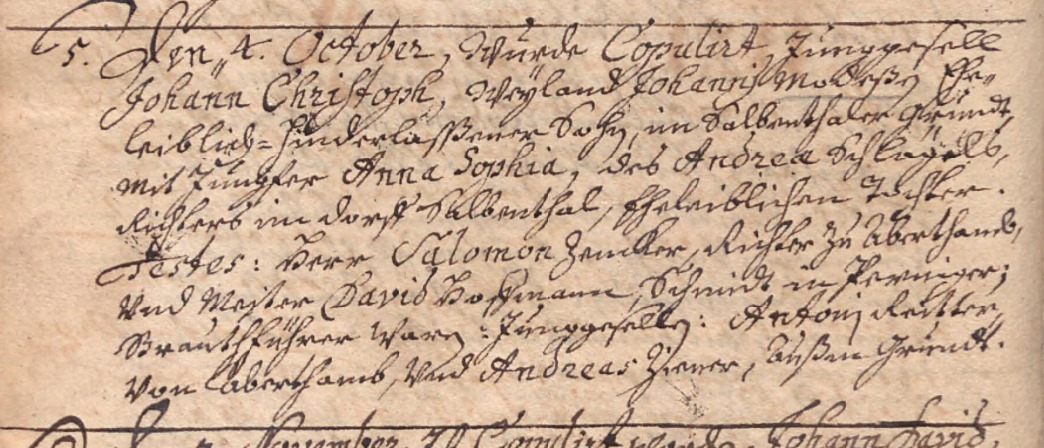 5. Den 4. October, wurde Copulirt, Junggesell
Johann Christoph, Weyland Johannis Modeßen Ehe-
leiblich-hinderlaßener Sohn, im Salbenthaler Grundt,
mit Jungfer Anna Sophia, des Andreæ Schlögels,
Richters im dorff Salbenthal, Eheleiblichen Tochter.
Testes: Herr Salomon Zencker, Richter zu Aberthamb,
und Meister David Hoffmann, Schmidt in Perninger;
Brauthführer waren: Junggesellen: Antonj Reitter,
von Aberthamb, und Andreas Ziener, außm Grundt.
November Copulirt Johann David